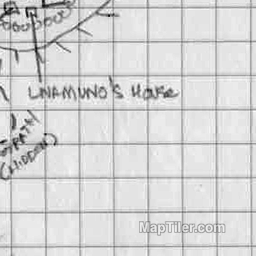 UNAMUNO'S House
PATH
(HIDDEN)
MapTiler.com